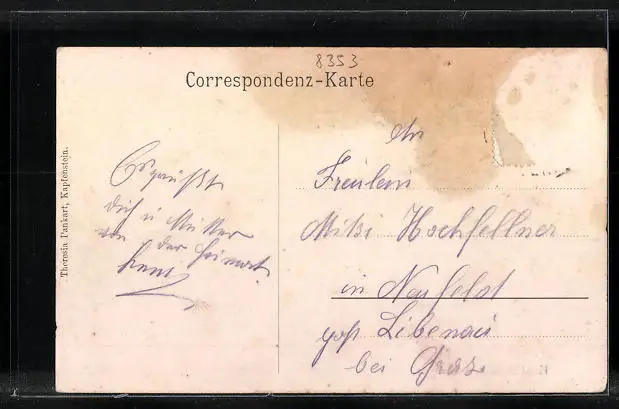 8353
Correspondenz-Karte
Theresia Tankart, Kapfenstein.
Es grüßt
Dich u Mutter
von der Heimat
An
Freulein
Mitzi Hochfellner
in Neufeld
post Libenau
bei Graz